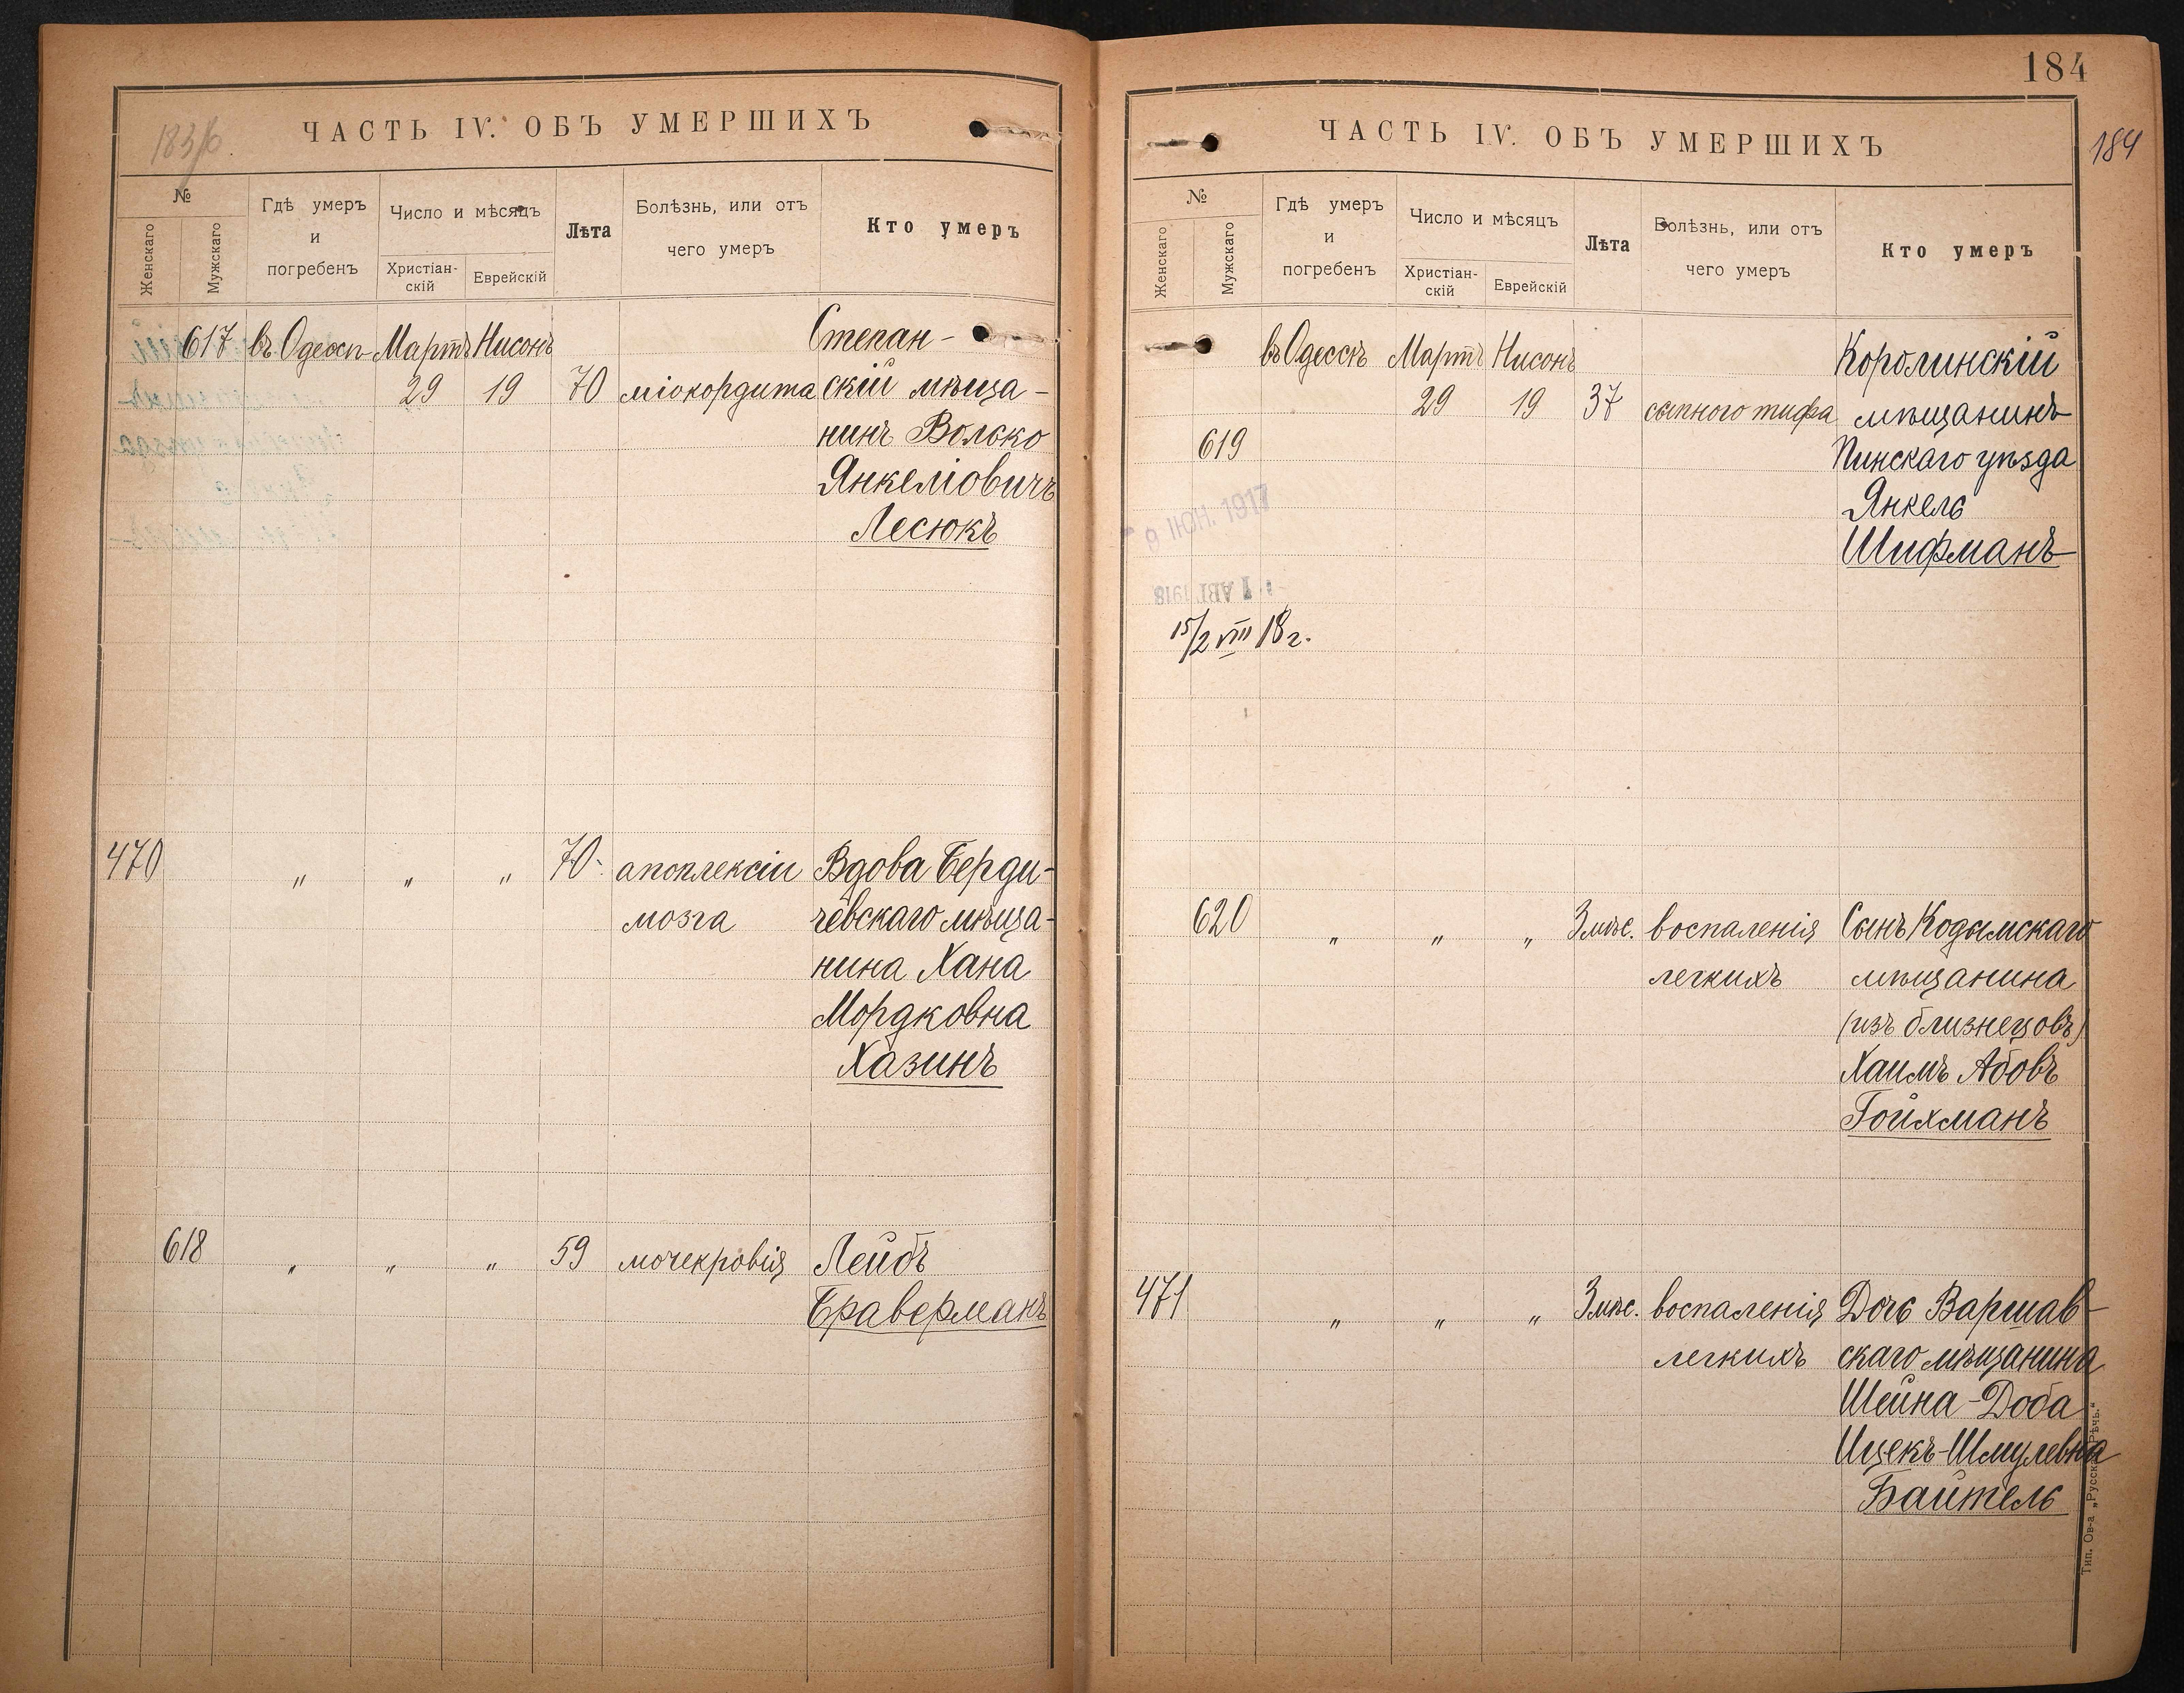 183/6.
ЧАСТЬ IV. ОБЪ УМЕРШИХЪ
№
Женскаго
Мужскаго
Гдѣ умеръ
и
погребенъ
Число и мѣсяцъ
Христіан-
скій
Еврейскій
Лѣта
Болѣзнь, или отъ
чего умеръ
Кто умеръ
617 въ Одессѣ Мартъ Нисонъ Степан-
29 19 70 міокордита скій мѣща-
нинъ Волько
Янкеліовичъ
Лесюкъ
470 " " " 70 апоплексіи Вдова Берди-
мозга чевскаго мѣща-
нина Хана
Мордковна
Хазинъ
618 " " " 59 мочекровія Лейбъ
Браверманъ
184
184
ЧАСТЬ IV. ОБЪ УМЕРШИХЪ
№
Женскаго
Мужскаго
Гдѣ умеръ
и
погребенъ
Число и мѣсяцъ
Христіан-
скій
Еврейскій
Лѣта
Болѣзнь, или отъ
чего умеръ
Кто умеръ
въ Одессѣ Мартъ Нисонъ Королинскій
29 19 37 сыпного тифа мѣщанинъ
619 Пинскаго уѣзда
Янкель
Шифманъ
9 ІЮН. 1917
1 АВГ. 1918
15/2 VIII 18 г.
620 " " " 3 мѣс. воспаленія Сынъ Кодымскаго
легкихъ мѣщанина
(изъ близнецовъ)
Хаимъ Абовъ
Гойхманъ
471 " " " 3 мѣс. воспаленія Дочь Варшав-
легкихъ скаго мѣщанина
Шейна-Доба
Ицекъ-Шмулевна
Байтель
Тип. Ов-а „Русск. Рѣчь."